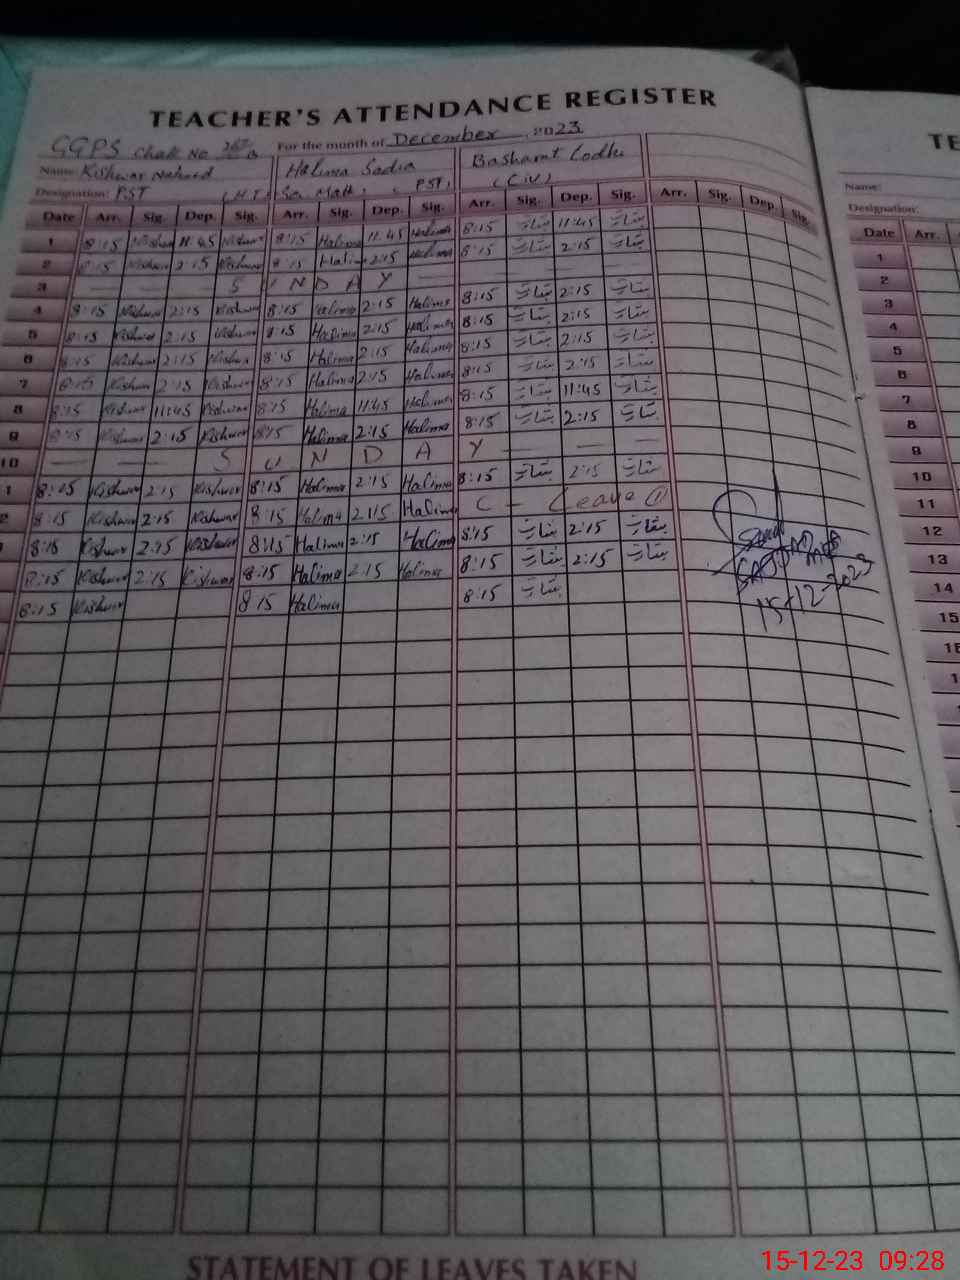 TEACHER'S ATTENDANCE REGISTER
GGPS Chak No For the month of December, 2023
Name: Kishwar Naheed Halima Sadia Basharat Lodhi
Designation: PST PST, (C iv)
Date Arr. Sig. Dep. Sig. Arr. Sig. Dep. Sig. Arr. Sig. Dep. Sig. Arr. Sig. Dep. Sig.
1 8:15 Kishwar 11:45 Kishwar 8:15 Halima 11:45 Halima 8:15 بشارت 11:45 بشارت
2 8:15 Kishwar 2:15 Kishwar 8:15 Halima 2:15 Halima 8:15 بشارت 2:15 بشارت
3 — — — S U N D A Y — — — —
4 8:15 Kishwar 2:15 Kishwar 8:15 Halima 2:15 Halima 8:15 بشارت 2:15 بشارت
5 8:15 Kishwar 2:15 Kishwar 8:15 Halima 2:15 Halima 8:15 بشارت 2:15 بشارت
6 8:15 Kishwar 2:15 Kishwar 8:15 Halima 2:15 Halima 8:15 بشارت 2:15 بشارت
7 8:15 Kishwar 2:15 Kishwar 8:15 Halima 2:15 Halima 8:15 بشارت 2:15 بشارت
8 8:15 Kishwar 11:45 Kishwar 8:15 Halima 11:45 Halima 8:15 بشارت 11:45 بشارت
9 8:15 Kishwar 2:15 Kishwar 8:15 Halima 2:15 Halima 8:15 بشارت 2:15 بشارت
10 — — S U N D A Y — — —
1 8:15 Kishwar 2:15 Kishwar 8:15 Halima 2:15 Halima 8:15 بشارت 2:15 بشارت
2 8:15 Kishwar 2:15 Kishwar 8:15 Halima 2:15 Halima C - Leave (1)
8:15 Kishwar 2:15 Kishwar 8:15 Halima 2:15 Halima 8:15 بشارت 2:15 بشارت
8:15 Kishwar 2:15 Kishwar 8:15 Halima 2:15 Halima 8:15 بشارت 2:15 بشارت
8:15 Kishwar 8:15 Halima 8:15 بشارت
SAJJAD
15-12-2023
STATEMENT OF LEAVES TAKEN
TE
Name:
Designation:
Date Arr.
1
2
3
4
5
6
7
8
9
10
11
12
13
14
15
15-12-23 09:28